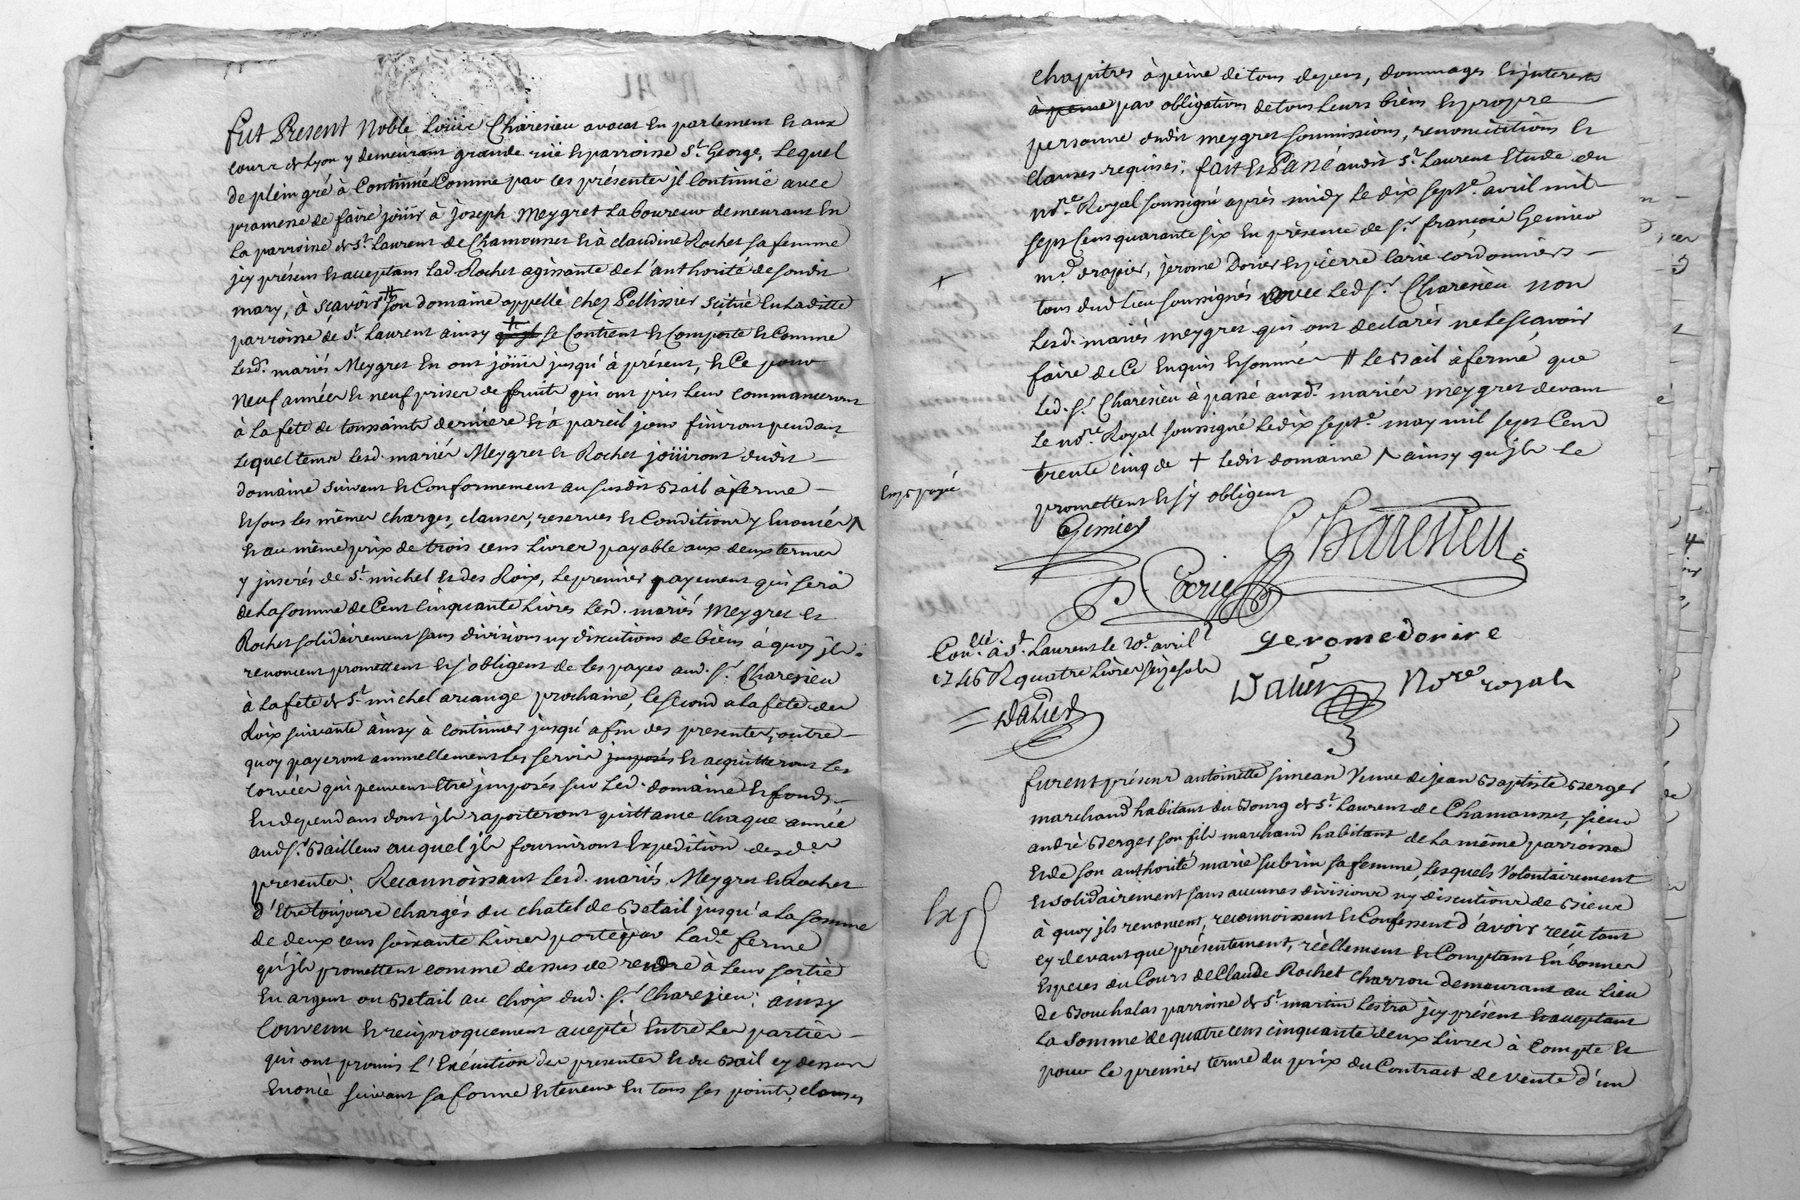 fut Present Noble Loüis Charesieu avocat En parlement et aux
cours de Lyon y demeurant grande ruë et parroisse St. George, Lequel
de plein gré à Continué Comme par ces présentes jl Continuë avec
promesse de faire joüir à joseph Meygret Laboureur demeurant En
La parroisse de St. Laurent de Chamousset et à claudine Rochet sa femme
jcy présens et acceptans Lad. Rochet agissante de L'authorité de son dit
mary, à sçavoir # son domaine appellé chez Pellissier scitué En Laditte
parroisse de St. Laurent ainsy + se Contient et Comporte et Comme
Lesd. mariés Meygret En ont joüi jusqu'à présent, et Ce pour
Neuf années et neuf prises de fruits qui ont pris Leur commancement
à La fête de toussaints dernière et à pareil jour finiront pendant
Lequel tems Lesd. mariés Meygret et Rochet joüiront dudit
domaine suivant et Conformement au susdit Bail à ferme
et sous les mêmes charges, clauses, reserves et Conditions y Enoncés ^
et au même prix de trois cens Livres payable aux deux termes
y jnserés de St. michel et des Roix, Le premier payement qui sera
de La somme de Cent Cinquante Livres Lesd. mariés Meygret et
Rochet solidairement sans divisions ny discutions de biens à quoy jls
renoncent promettent et s'obligent de les payer aud. Sr. Charesieu
à La fête de St. michel arcange prochaine, le second a La fête des
Roix suivante ainsy à continuer jusqu'a fin des presentes, outre
quoy payeront annuellement Les servis jmposés et acquitteront Les
corvées qui peuvent être jmposés sur Led. domaine et fonds
En dependans dont jls raporteront quittance chaque année
aud. Sr. Bailleur auquel jls fourniront Expedition desd.es
presentes; Reconnoissant Lesd. mariés Meygret et Rochet
d'Etre toujours chargés du chatel de Betail jusqu'a La somme
de deux cens soixante Livres porté par Lad.e ferme
qu'jls promettent comme dessus de rendre à Leur sortie
En argent ou Betail au choix dud. Sr. Charesieu; ainsy
Convenu et reciproquement accepté Entre Les parties
qui ont promis L'Execution des presentes et du Bail cy dessus
Enoncé suivant sa forme et teneur En tous ses points, clauses
chapitres à peine de tous depens, dommages et jnterests
à peine par obligations de tous Leurs biens et propre
personne dudit meygret soumissions, renonciations et
clauses requises; fait et Passé audit St. Laurent Etude du
no.re Royal soussigné après midy Le dix sept.e avril mil
sept Cens quarante six En présence de Sr. françois Gemier
md. drapier, jerome Dorier et pierre Carie cordonniers
tous dud. Lieu soussignés avec Led. Sr. Charesieu non
Lesd. mariés meygret qui ont declarés ne Le sçavoir
faire de Ce Enquis et sommés # Le Bail à ferme que
Led. Sr. Charesieu à passé auxd. mariés meygret devant
Le no.re Royal soussigné Le dix sept.e may mil sept Cens
trente Cinq de + Ledit domaine ^ ainsy qu'jls Le
promettent et s'y obligent
+
Exp payé
Gemier
Charesieu
P. Carie
geromedorire
Con.lle à St. Laurent Le 20.e avril
1746 R quatre Livres seize sols
Dalier
Dalier
No.re royal
furent présens antoinette simean Veuve de jean Baptiste Berger
marchand habitant du Bourg de St. Laurent de Chamousset, sieur
andré Berger son fils marchand habitant de La même parroisse
et de son authorité marie subrin sa femme, Lesquels Volontairement
et solidairement sans aucunes divisions ny discutions de Biens
à quoy jls renoncent, reconnoissent et Confessent d'avoir reçû tant
cy devant que présentement, réellement et Comptant En bonnes
Especes du Cours de Claude Rochet charron demeurant au Lieu
de Bouchalas parroisse de St. martin Lestra jcy présent et acceptant
La somme de quatre cens cinquante deux Livres à Compte et
pour Le premier terme du prix du Contract de vente d'un
Exp